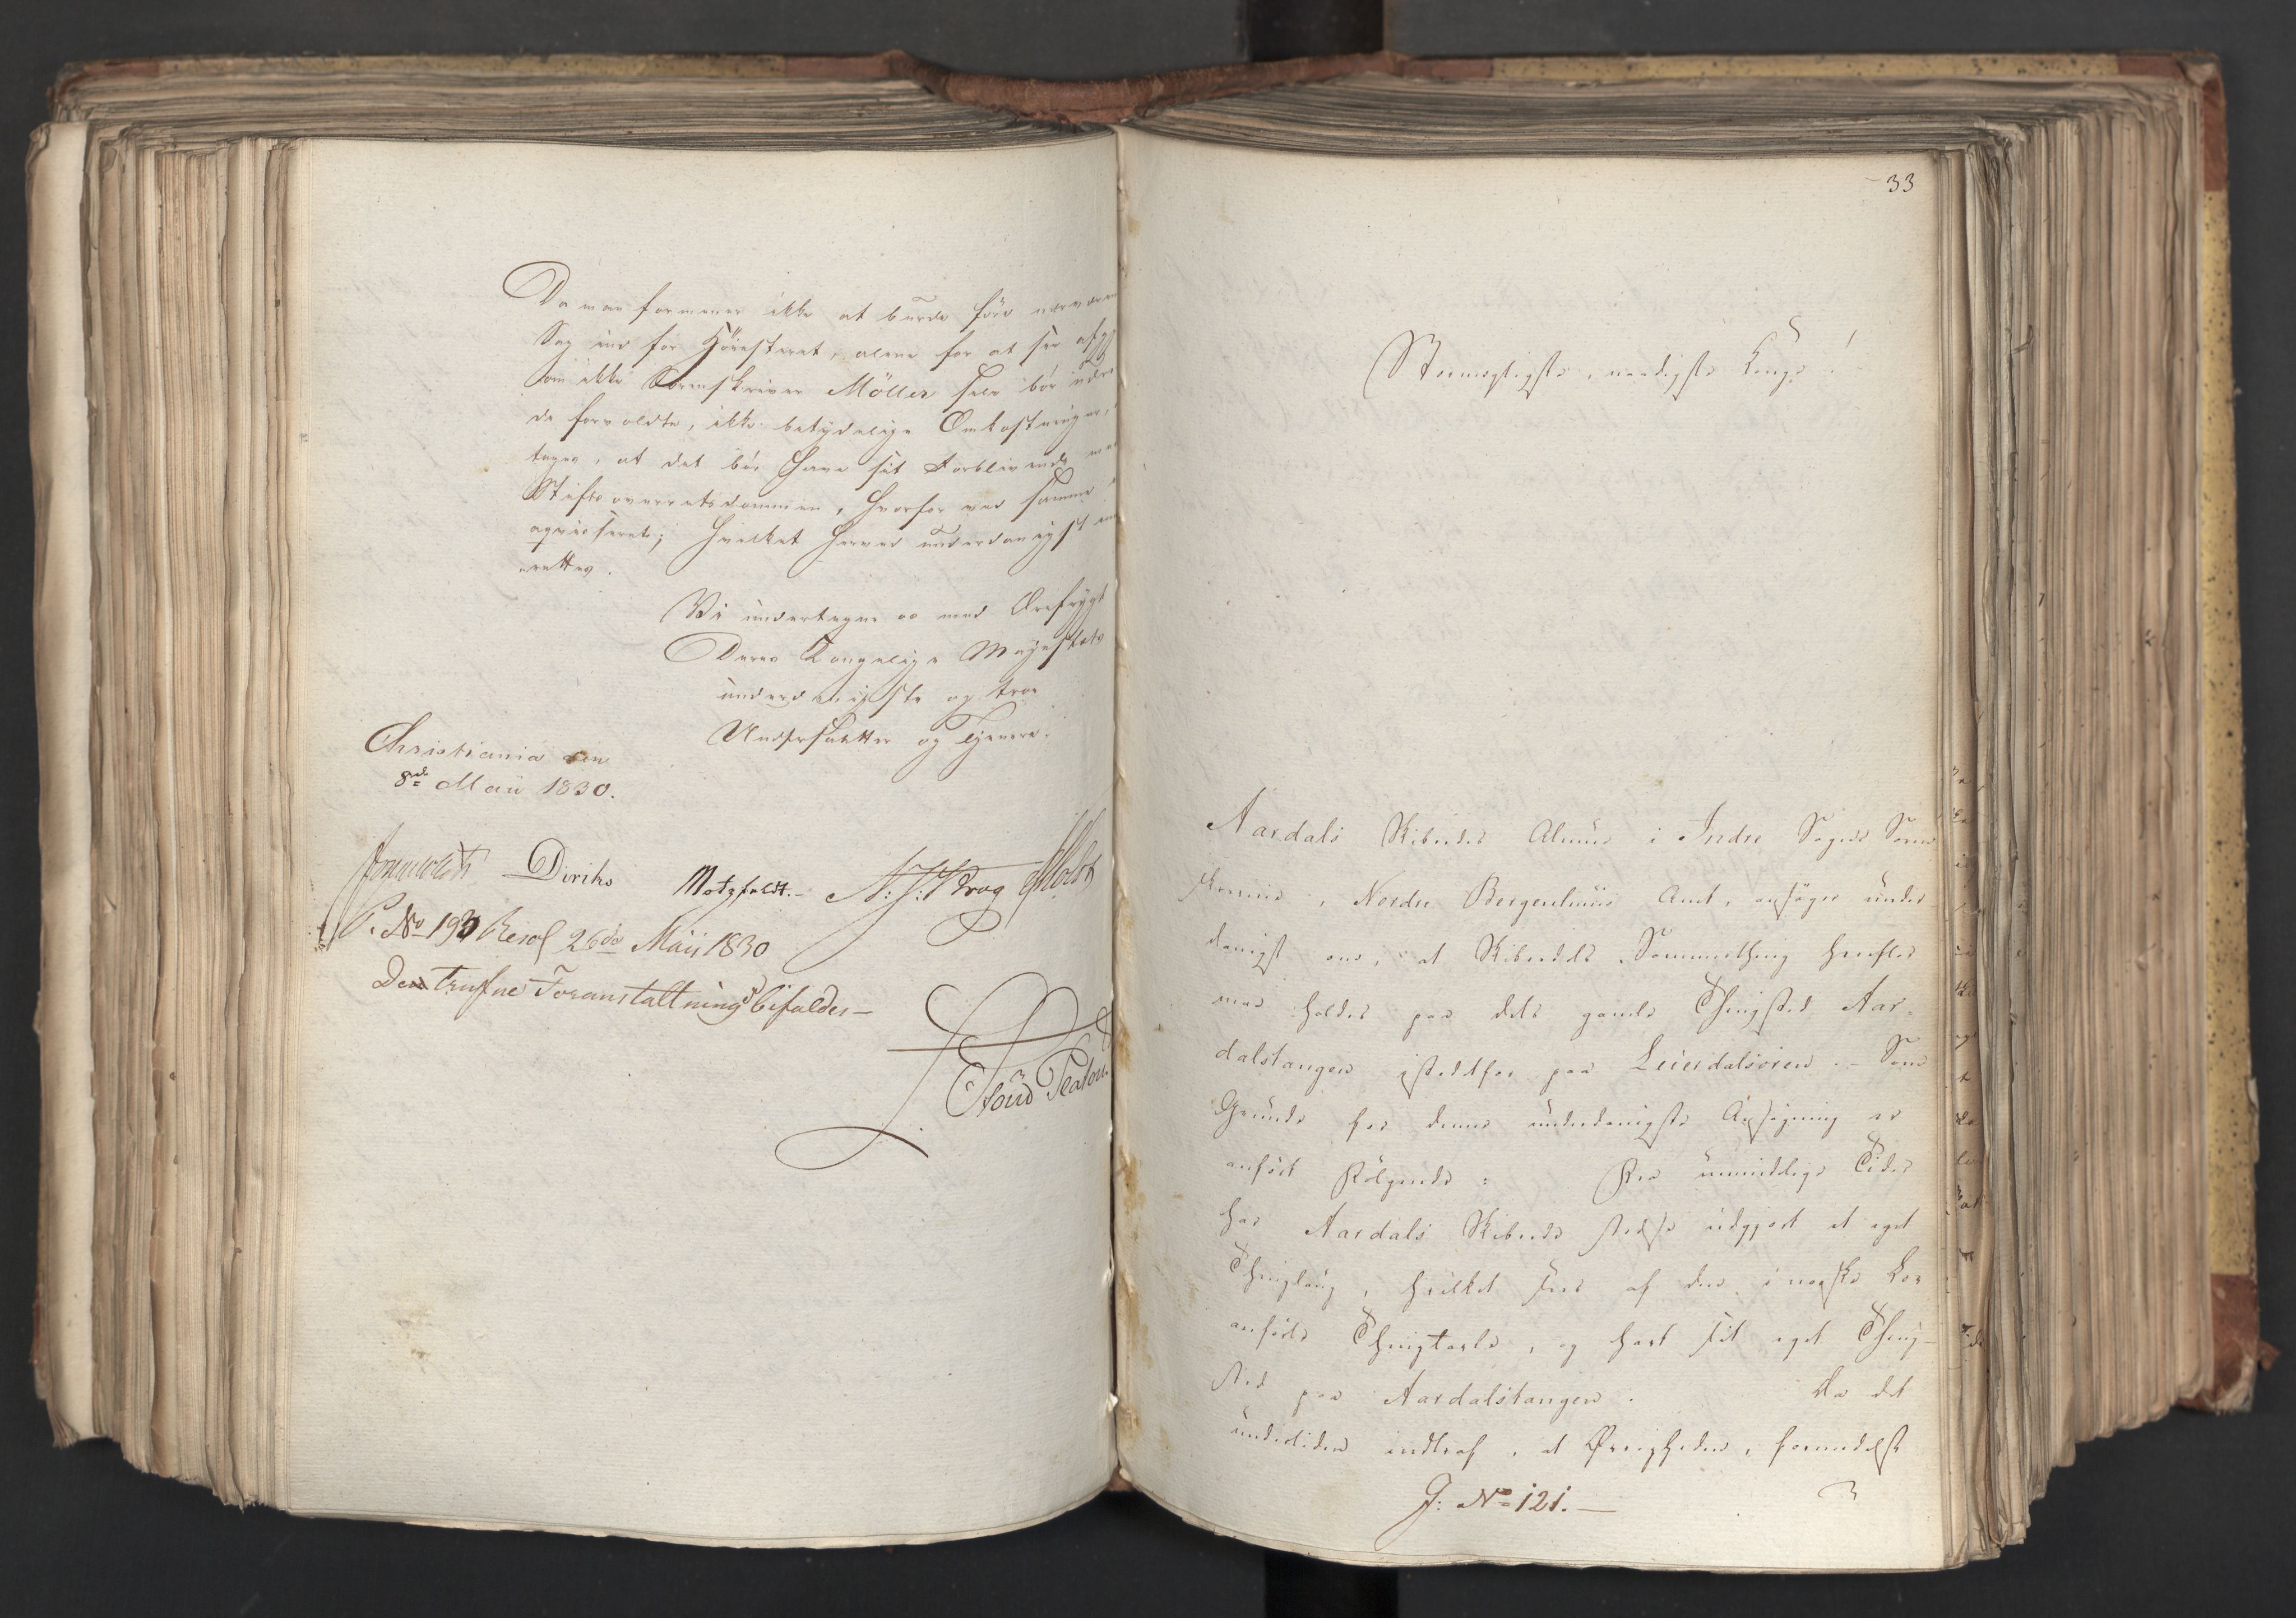 Da man formener ikke at burde føre nærværen
Sag ind for Höiesteret, alene for at see afgj
om ikke Sorenskriver Möller selv bör udre
de forvoldte, ikke betydelige Omkostninger,
tages, at det bör have sit Forblivende med
Stiftsoverretsdommen, hvorfor ved samme
acquiesceret; hvilket herved underdanigst ind
berettes.
Vi undertegne os med Ærefrygt
Deres Kongelige Majestæts
underdanigste og troe
Undersaatter og Tjenere.
Christiania den
8de Maii 1830.
Diriks Motzfeldt.- Holst
P. No 193 Resol 26de Maij 1830
Den trufne Foranstaltning bifaldes—
33
Stormægtigste, naadigste Konge!
Aardals Skibredes Almue i Indre Sogns Soren
skriverie, Nordre Bergenhuus Amt, ansøger under-
danigst om, at Skibredets Sommerthing herefter
maa holdes paa dets gamle Thingsted Aar-
dalstangen istedetfor paa Leierdalsören. - Som
Grunde for denne underdanigste Ansøgning er
anfört Fölgende: Fra umindelige Tider
har Aardals Skibrede stedse udgjort et eget
Thinglaug, hvilket sees af den i norske Lov
anförte Thingtavle, og havt sit eget Thing-
sted paa Aardalstangen. Da det
undertiden indtraf, at Øvrigheden, formedelst
J: No 121.—